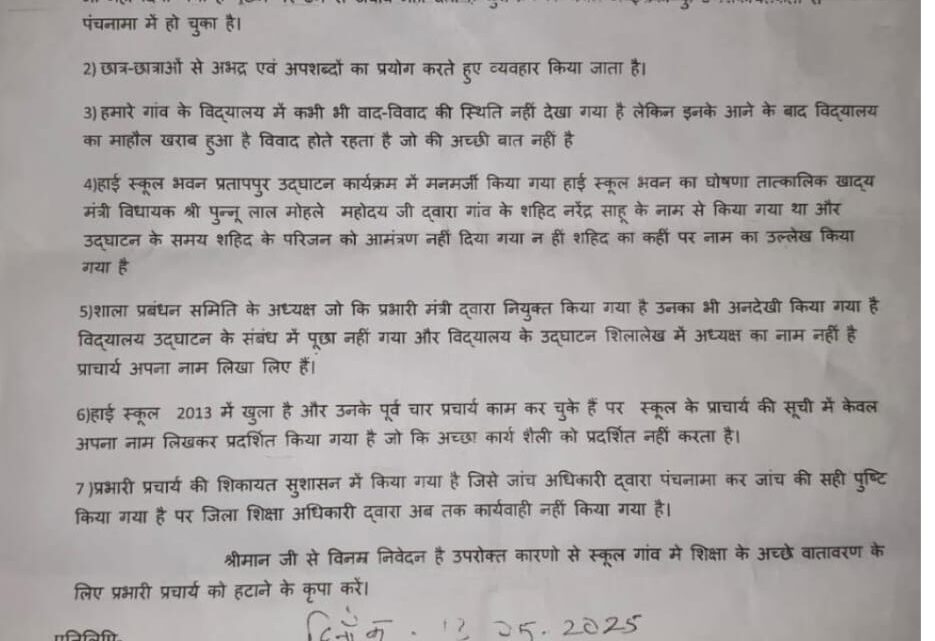 पंचनामा में हो चुका है।
2) छात्र-छात्राओं से अभद्र एवं अपशब्दों का प्रयोग करते हुए व्यवहार किया जाता है।
3) हमारे गांव के विद्यालय में कभी भी वाद-विवाद की स्थिति नहीं देखा गया है लेकिन इनके आने के बाद विद्यालय
का माहौल खराब हुआ है विवाद होते रहता है जो की अच्छी बात नहीं है
4)हाई स्कूल भवन प्रतापपुर उद्घाटन कार्यक्रम में मनमर्जी किया गया हाई स्कूल भवन का घोषणा तात्कालिक खाद्य
मंत्री विधायक श्री पुन्नू लाल मोहले महोदय जी द्वारा गांव के शहिद नरेंद्र साहू के नाम से किया गया था और
उद्घाटन के समय शहिद के परिजन को आमंत्रण नहीं दिया गया न हीं शहिद का कहीं पर नाम का उल्लेख किया
गया है
5)शाला प्रबंधन समिति के अध्यक्ष जो कि प्रभारी मंत्री द्वारा नियुक्त किया गया है उनका भी अनदेखी किया गया है
विद्यालय उद्घाटन के संबंध में पूछा नहीं गया और विद्यालय के उद्घाटन शिलालेख में अध्यक्ष का नाम नहीं है
प्राचार्य अपना नाम लिखा लिए हैं।
6)हाई स्कूल 2013 में खुला है और उनके पूर्व चार प्रचार्य काम कर चुके हैं पर स्कूल के प्राचार्य की सूची में केवल
अपना नाम लिखकर प्रदर्शित किया गया है जो कि अच्छा कार्य शैली को प्रदर्शित नहीं करता है।
7)प्रभारी प्रचार्य की शिकायत सुशासन में किया गया है जिसे जांच अधिकारी द्वारा पंचनामा कर जांच की सही पुष्टि
किया गया है पर जिला शिक्षा अधिकारी द्वारा अब तक कार्यवाही नहीं किया गया है।
श्रीमान जी से विनम्र निवेदन है उपरोक्त कारणो से स्कूल गांव मे शिक्षा के अच्छे वातावरण के
लिए प्रभारी प्रचार्य को हटाने के कृपा करें।
दिनाँक . 05.2025
प्रतिलिपि-